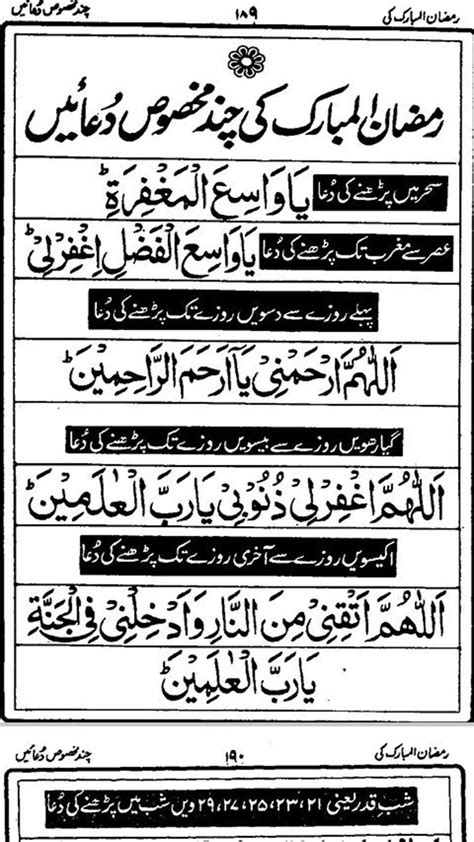 رمضان المبارک کی ۱۸۹ چند مخصوص دعائیں
رمضان المبارک کی چند مخصوص دُعائیں
سحر میں پڑھنے کی دُعا يَا وَاسِعَ الْمَغْفِرَةِ ط
عصر سے مغرب تک پڑھنے کی دُعا يَا وَاسِعَ الْفَضْلِ اِغْفِرْلِىْ ط
پہلے روزے سے دسویں روزے تک پڑھنے کی دُعا
اَللّٰهُمَّ ارْحَمْنِىْ يَآ اَرْحَمَ الرَّاحِمِيْنَ ط
گیارھویں روزے سے بیسویں روزے تک پڑھنے کی دُعا
اَللّٰهُمَّ اغْفِرْلِىْ ذُنُوْبِىْ يَارَبَّ الْعٰلَمِيْنَ ط
اکیسویں روزے سے آخری روزے تک پڑھنے کی دُعا
اَللّٰهُمَّ اَتْقِنِىْ مِنَ النَّارِ وَاَدْخِلْنِىْ فِى الْجَنَّةِ
يَارَبَّ الْعٰلَمِيْنَ ط
رمضان المبارک کی ۱۹۰ چند مخصوص دعائیں
شبِ قدر یعنی ۲۱، ۲۳، ۲۵، ۲۷، ۲۹ ویں شب میں پڑھنے کی دُعا